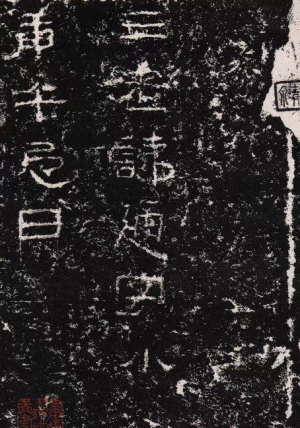 三老諱通字小
庚午忌日